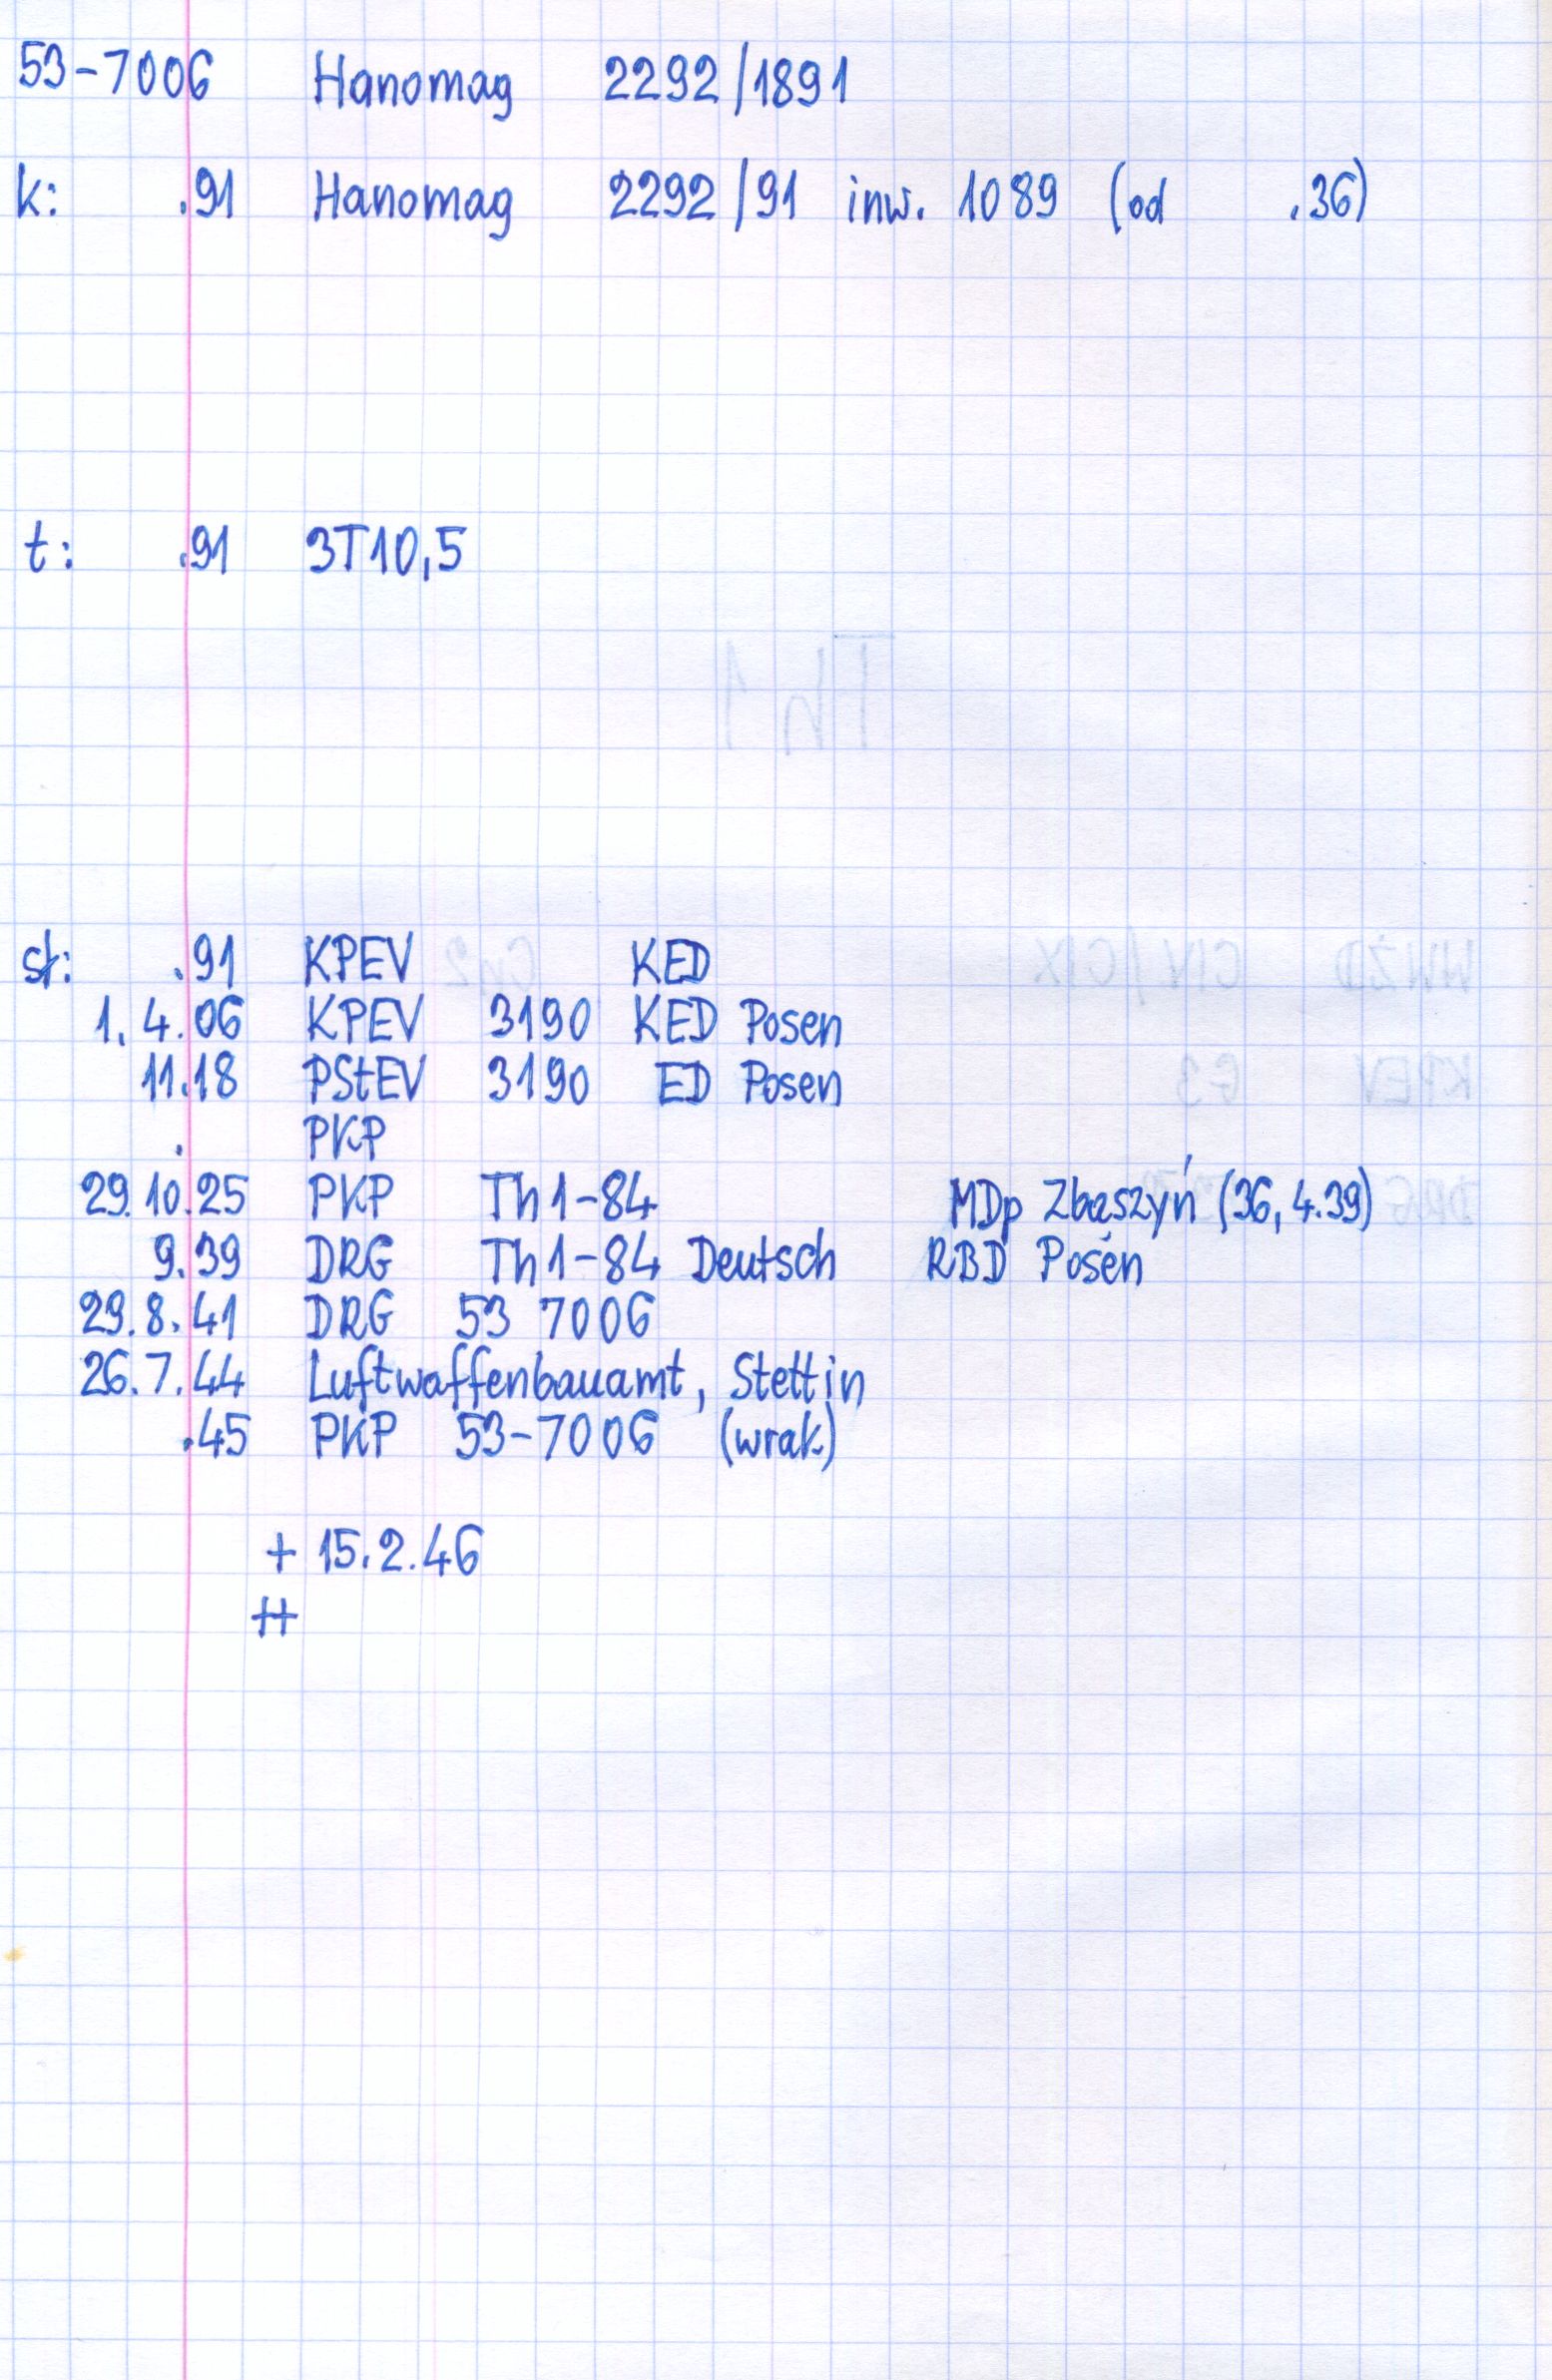 53-7006 Hanomag 2292/1891
k: .91 Hanomag 2292/91 inw. 1089 (od .36)
t: .91 3T10,5
st: .91 KPEV KED
1.4.06 KPEV 3190 KED Posen
11.18 PStEV 3190 ED Posen
. PKP
29.10.25 PKP Th1-84 MDp Zbąszyń (36, 4.39)
9.39 DRG Th1-84 Deutsch RBD Posen
29.8.41 DRG 53 7006
26.7.44 Luftwaffenbauamt, Stettin
.45 PKP 53-7006 (wrak)
+ 15.2.46
++